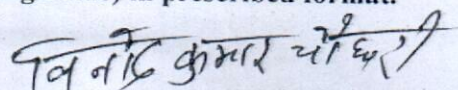 in prescribed format.
विनोद कुमार चौधरी